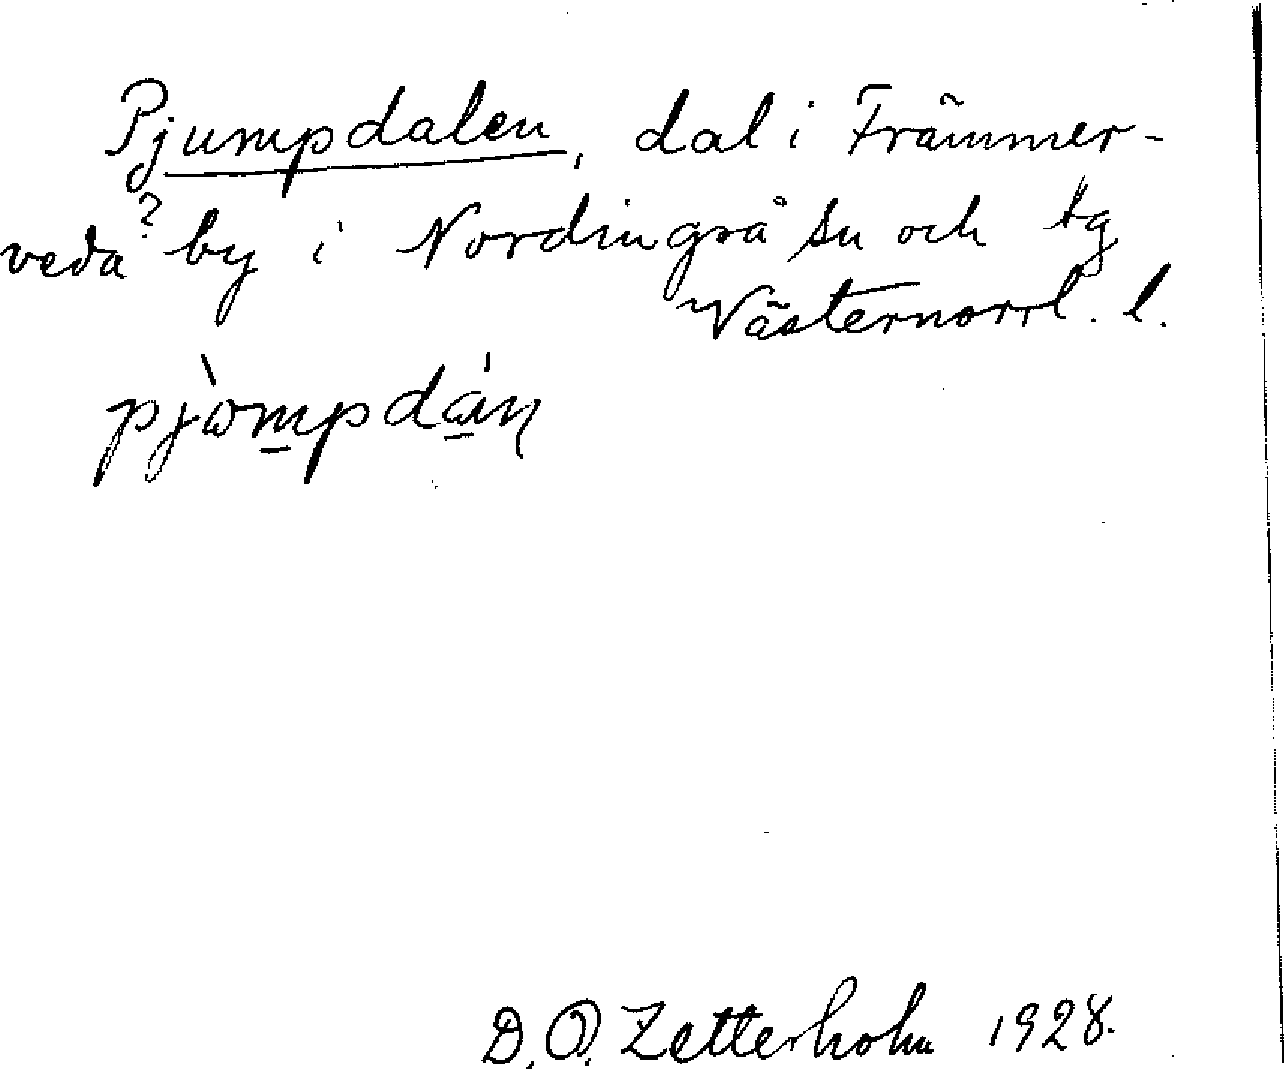 Pjumpdalen, dal i Främmer-
veda? by i Nordingrå sn och tg
Västernorrl. l.
pjòmpdán
D. O. Zetterholm 1928.